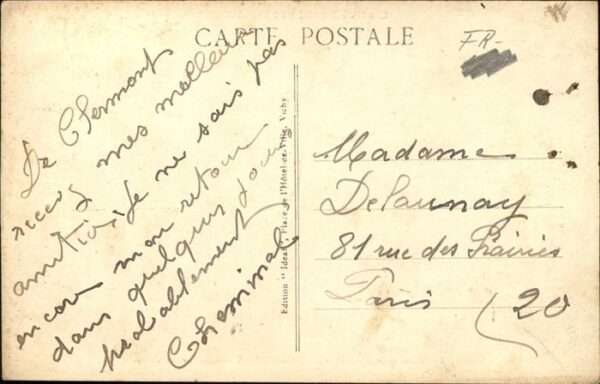 CARTE POSTALE
FR-
De Clermont
recevez mes meilleures
amitiés. Je ne sais pas
encore mon retour
dans quelques jours
probablement
Edition "Ideal" Place de l'Hôtel-de-Ville, Vichy
Madame
Delaunay
81 rue des Prairies
Paris (20